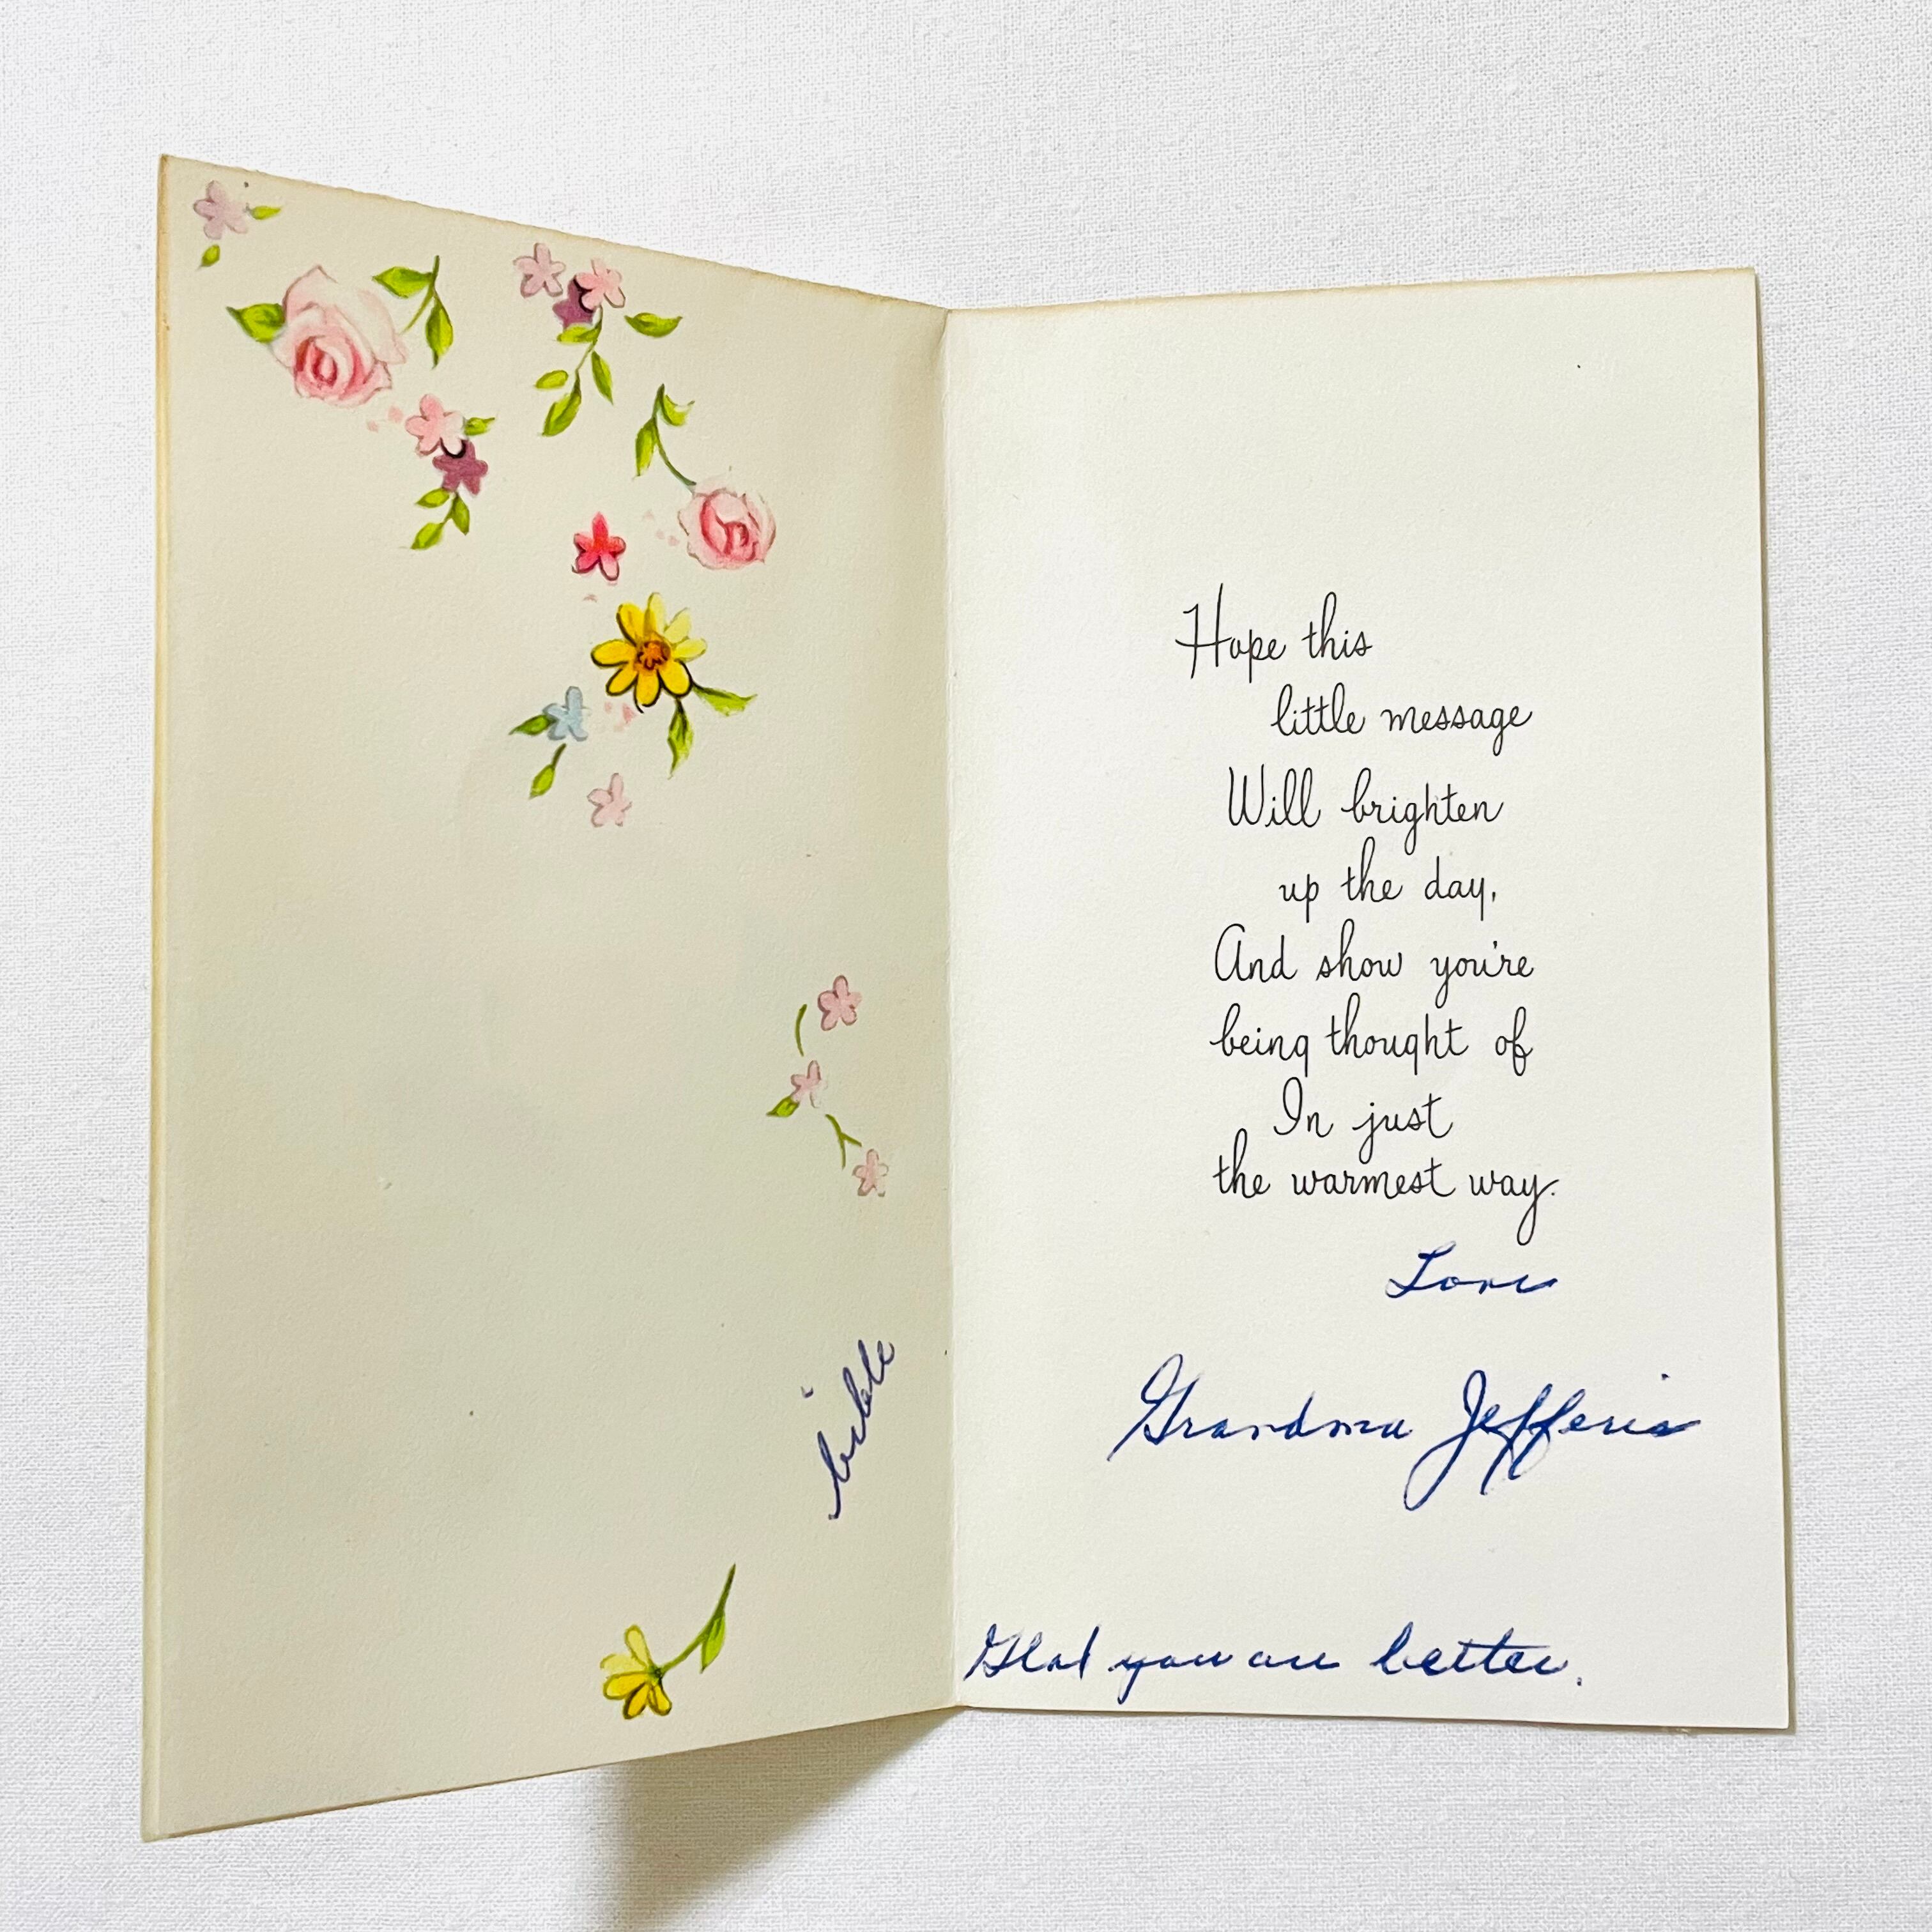 bible
Hope this
little message
Will brighten
up the day,
And show you're
being thought of
In just
the warmest way.
Love
Grandma Jefferis
Glad you are better.